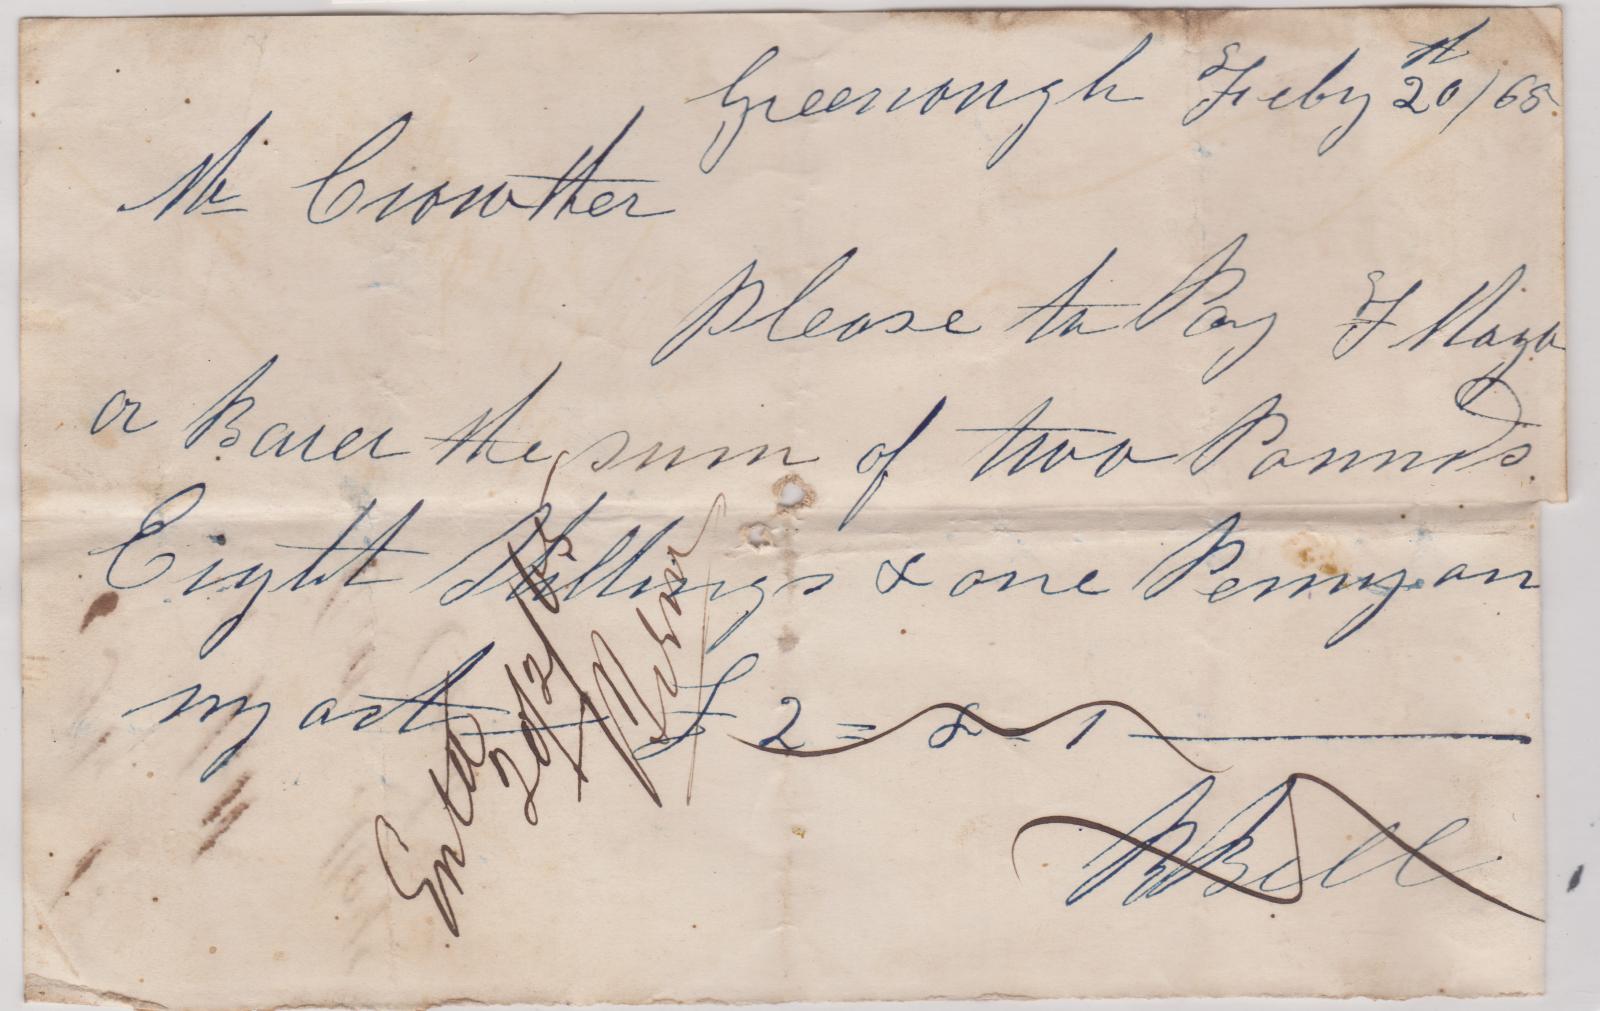 Greenough Feby 20th/65
Mr Crowther
Please to Pay F Mayo
or Barer the sum of two Pounds
Eight Shillings & one Penny on
my act £2=8=1
R Bell
Entd
20/2/65